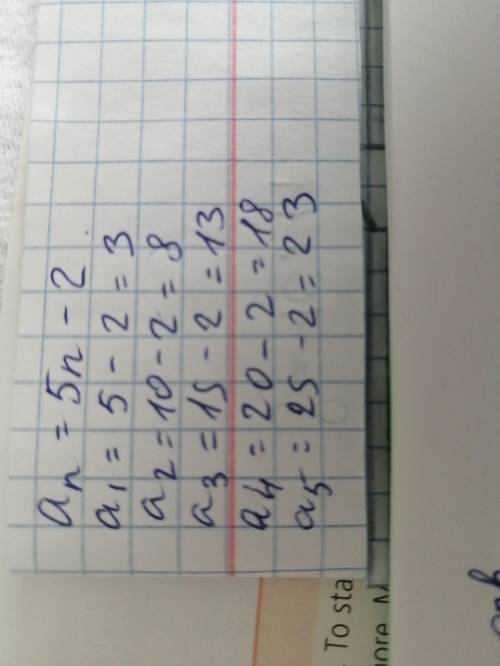 aₙ = 5n - 2
a₁ = 5 - 2 = 3
a₂ = 10 - 2 = 8
a₃ = 15 - 2 = 13
a₄ = 20 - 2 = 18
a₅ = 25 - 2 = 23
To sta
ore M